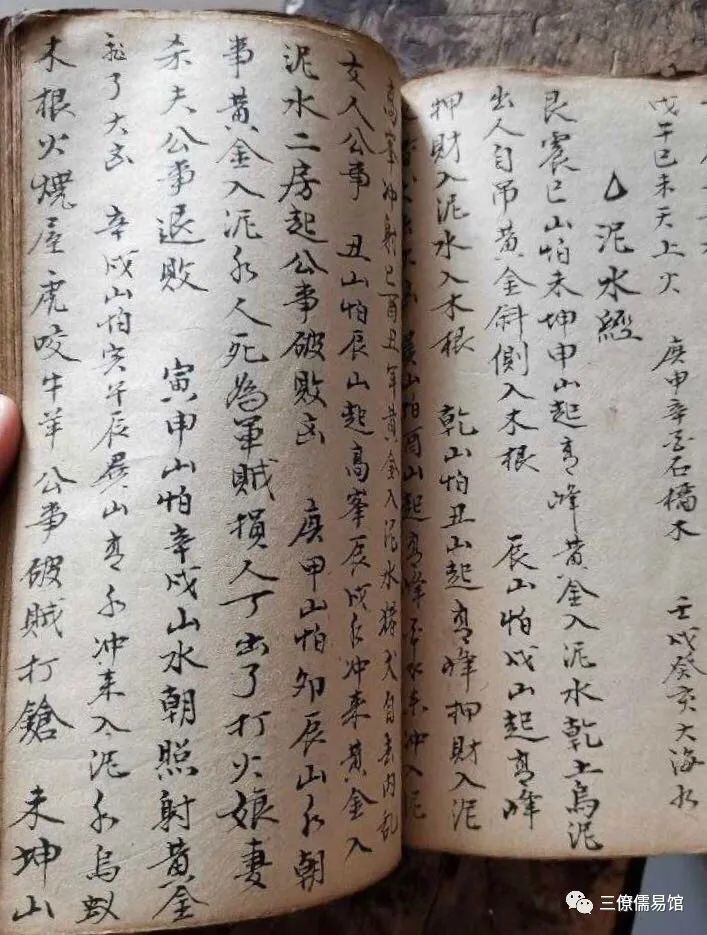 戊午己未天上火 庚申辛酉石榴木 壬戌癸亥大海水
泥水經
艮震巳山怕未坤申山起高峰黄金入泥水乾土烏泥
出人自吊黄金斜側入木根 辰山怕戌山起高峰
押財入泥水入木根 乾山怕丑山起高峰押財入泥
山怕酉山起高峰 水来冲入泥
高峯冲射巳酉丑年黄金入泥水 自去内乱
女人公事 丑山怕辰山起高峯辰戌水冲来黄金入
泥水二房起公事破敗凶 庚甲山怕卯辰山水朝
事黄金入泥水人死為軍賊損人丁出了打火娘妻
杀夫公事退敗 寅申山怕辛戌山水朝照射黄金
了大凶 辛戌山怕亥午辰巽山高水冲来入泥水烏蚁
木根火燒屋虎咬牛羊公事破賊打鎗 未坤山
三僚儒易馆